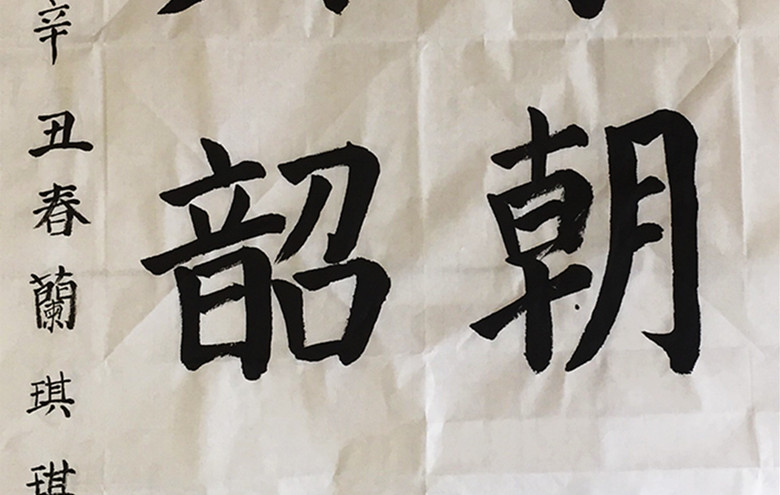 朝
韶
辛丑春蘭琪琪